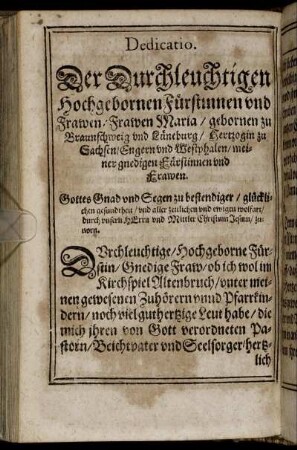 Dedicatio.
Der Durchleuchtigen
Hochgebornen Fürstinnen vnd
Frawen / Frawen Maria / gebornen zu
Braunschweig vnd Lüneburg / Hertzogin zu
Sachsen / Engern vnd Westphalen / mei-
ner gnedigen Fürstinnen vnd
Frawen.
Gottes Gnad vnd Segen zu bestendiger / glückli-
chen gesundtheit / vnd aller zeitlichen vnd ewigen wolfart /
durch vnsern HErrn vnd Mittler Christum Jesum / zu-
uorn.
DVrchleuchtige / Hochgeborne Für-
stin / Gnedige Fraw / ob ich wol im
Kirchspiel Altenbruch / vnter mei-
nen gewesenen Zuhörern vnnd Pfarrkin-
dern / noch viel guthertzige Leut habe / die
mich jhren von Gott verordneten Pa-
storn / Beichtvater vnd Seelsorger / hertz-
lich